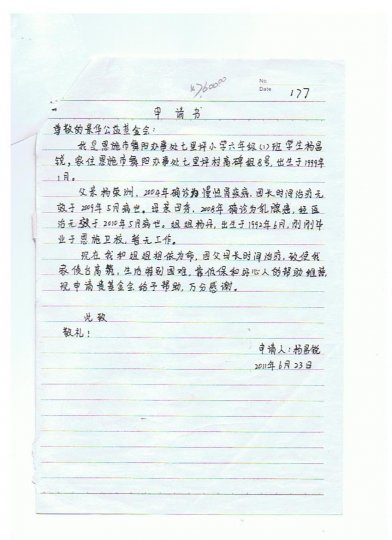 No.
Date 177
申请书
尊敬的景华公益基金会:
我是恩施市舞阳办事处七里坪小学六年级(1)班学生杨昌
锐,家住恩施市舞阳办事处七里坪村高碑组8号,出生于1999年
1月。
父亲杨荣洲,2004年确诊为慢性肾疾病,因长时间治疗无
效于2009年5月病世。母亲田芬,2008年确诊为乳腺癌,经医
治无效于2010年5月病世。姐姐杨丹,出生于1992年6月,刚刚毕
业于恩施卫校,暂无工作。
现在我和姐姐相依为命,因父母长时间治疗,致使我
家债台高筑,生活特别困难,靠低保和好心人的帮助维持
现申请贵基金会给予帮助,万分感谢。
此致
敬礼!
申请人:杨昌锐
2011年6月23日